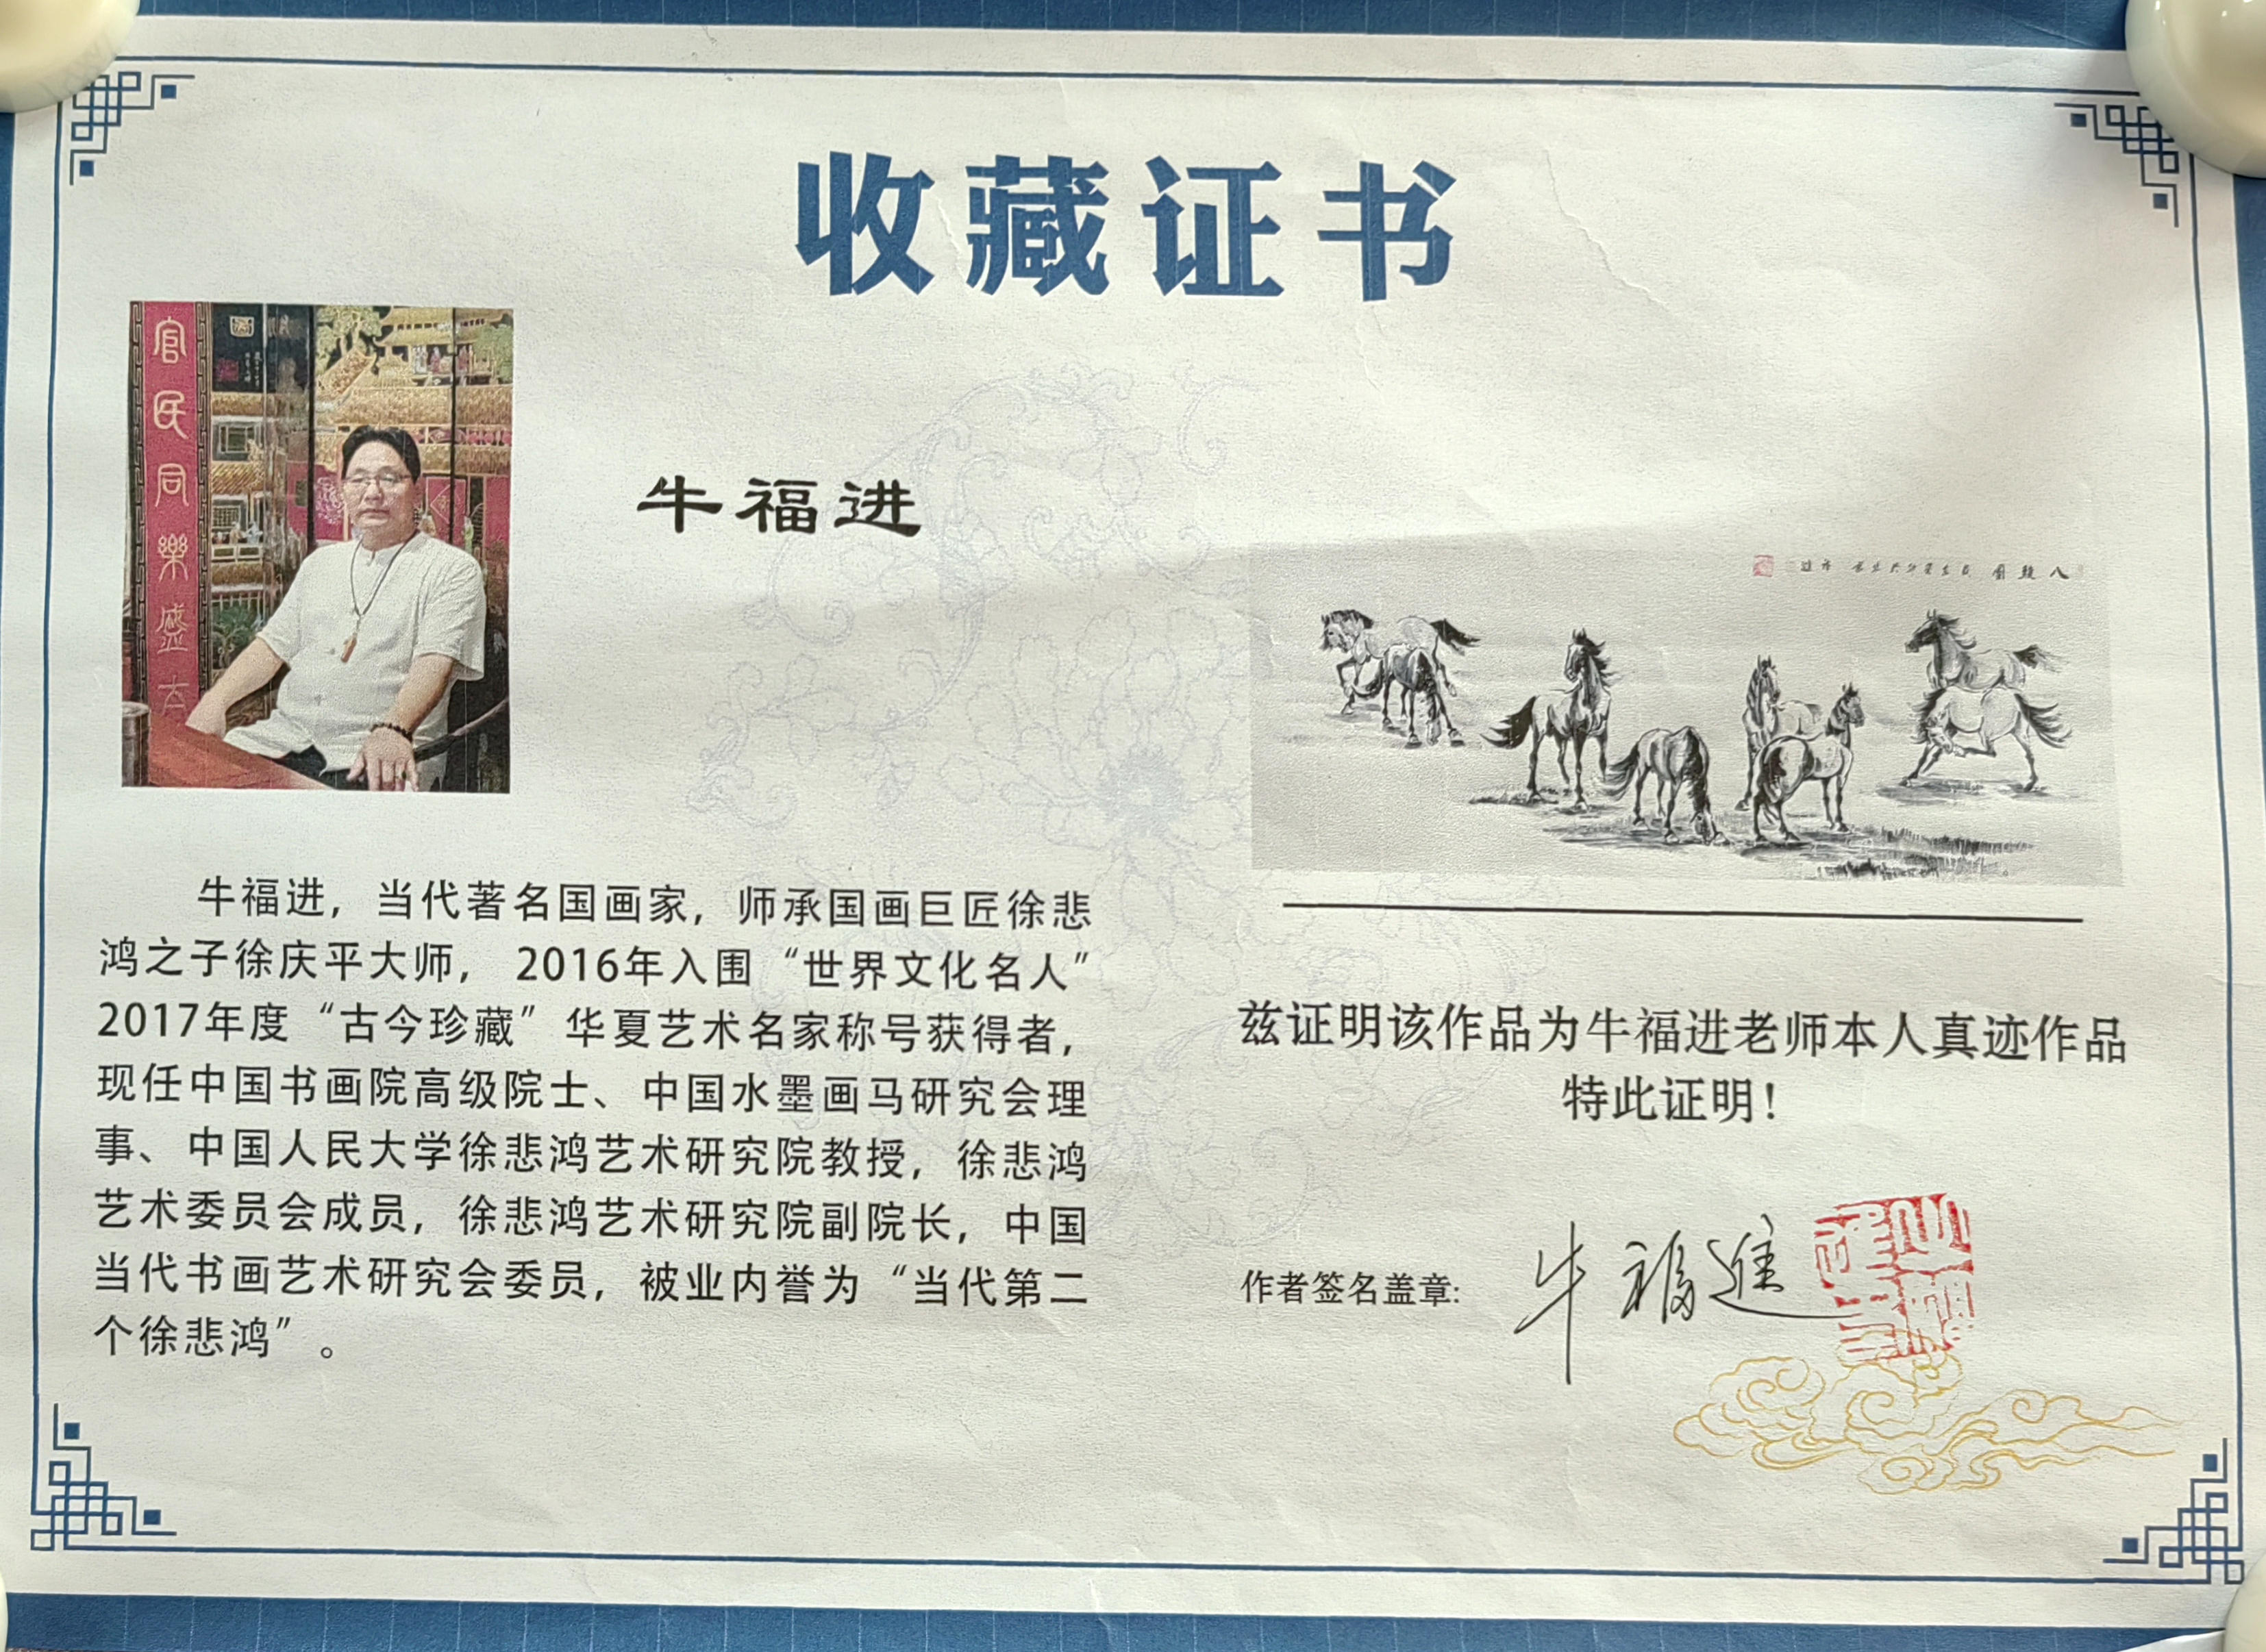 收藏证书
官民同樂盛
牛福进
牛福进，当代著名国画家，师承国画巨匠徐悲
鸿之子徐庆平大师， 2016年入围“世界文化名人”
2017年度“古今珍藏”华夏艺术名家称号获得者，
现任中国书画院高级院士、中国水墨画马研究会理
事、中国人民大学徐悲鸿艺术研究院教授，徐悲鸿
艺术委员会成员，徐悲鸿艺术研究院副院长，中国
当代书画艺术研究会委员，被业内誉为“当代第二
个徐悲鸿”。
八駿圖
兹证明该作品为牛福进老师本人真迹作品
特此证明！
作者签名盖章：牛福進